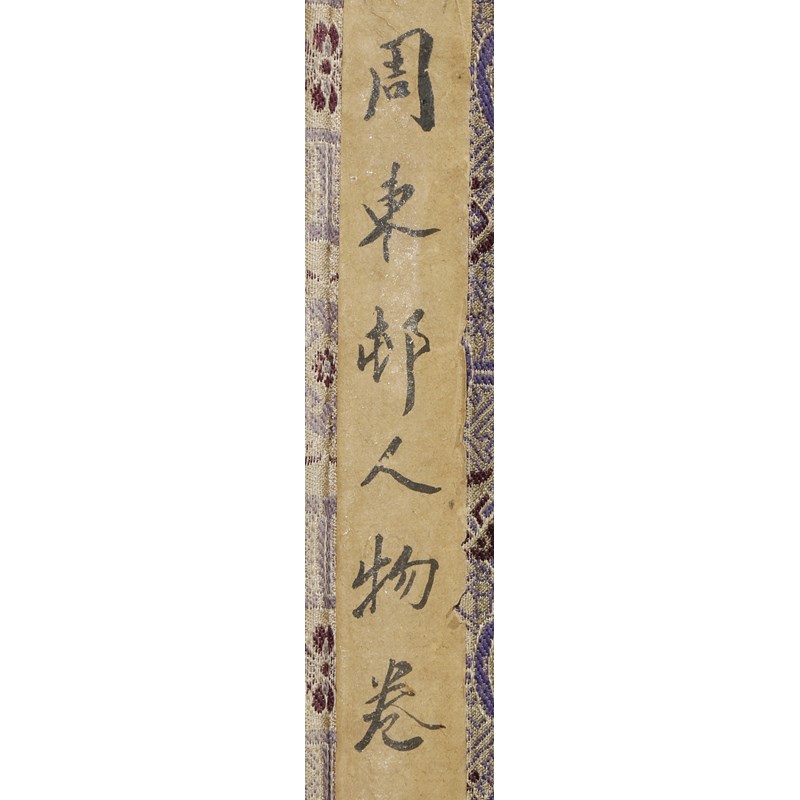 周東邨人物卷